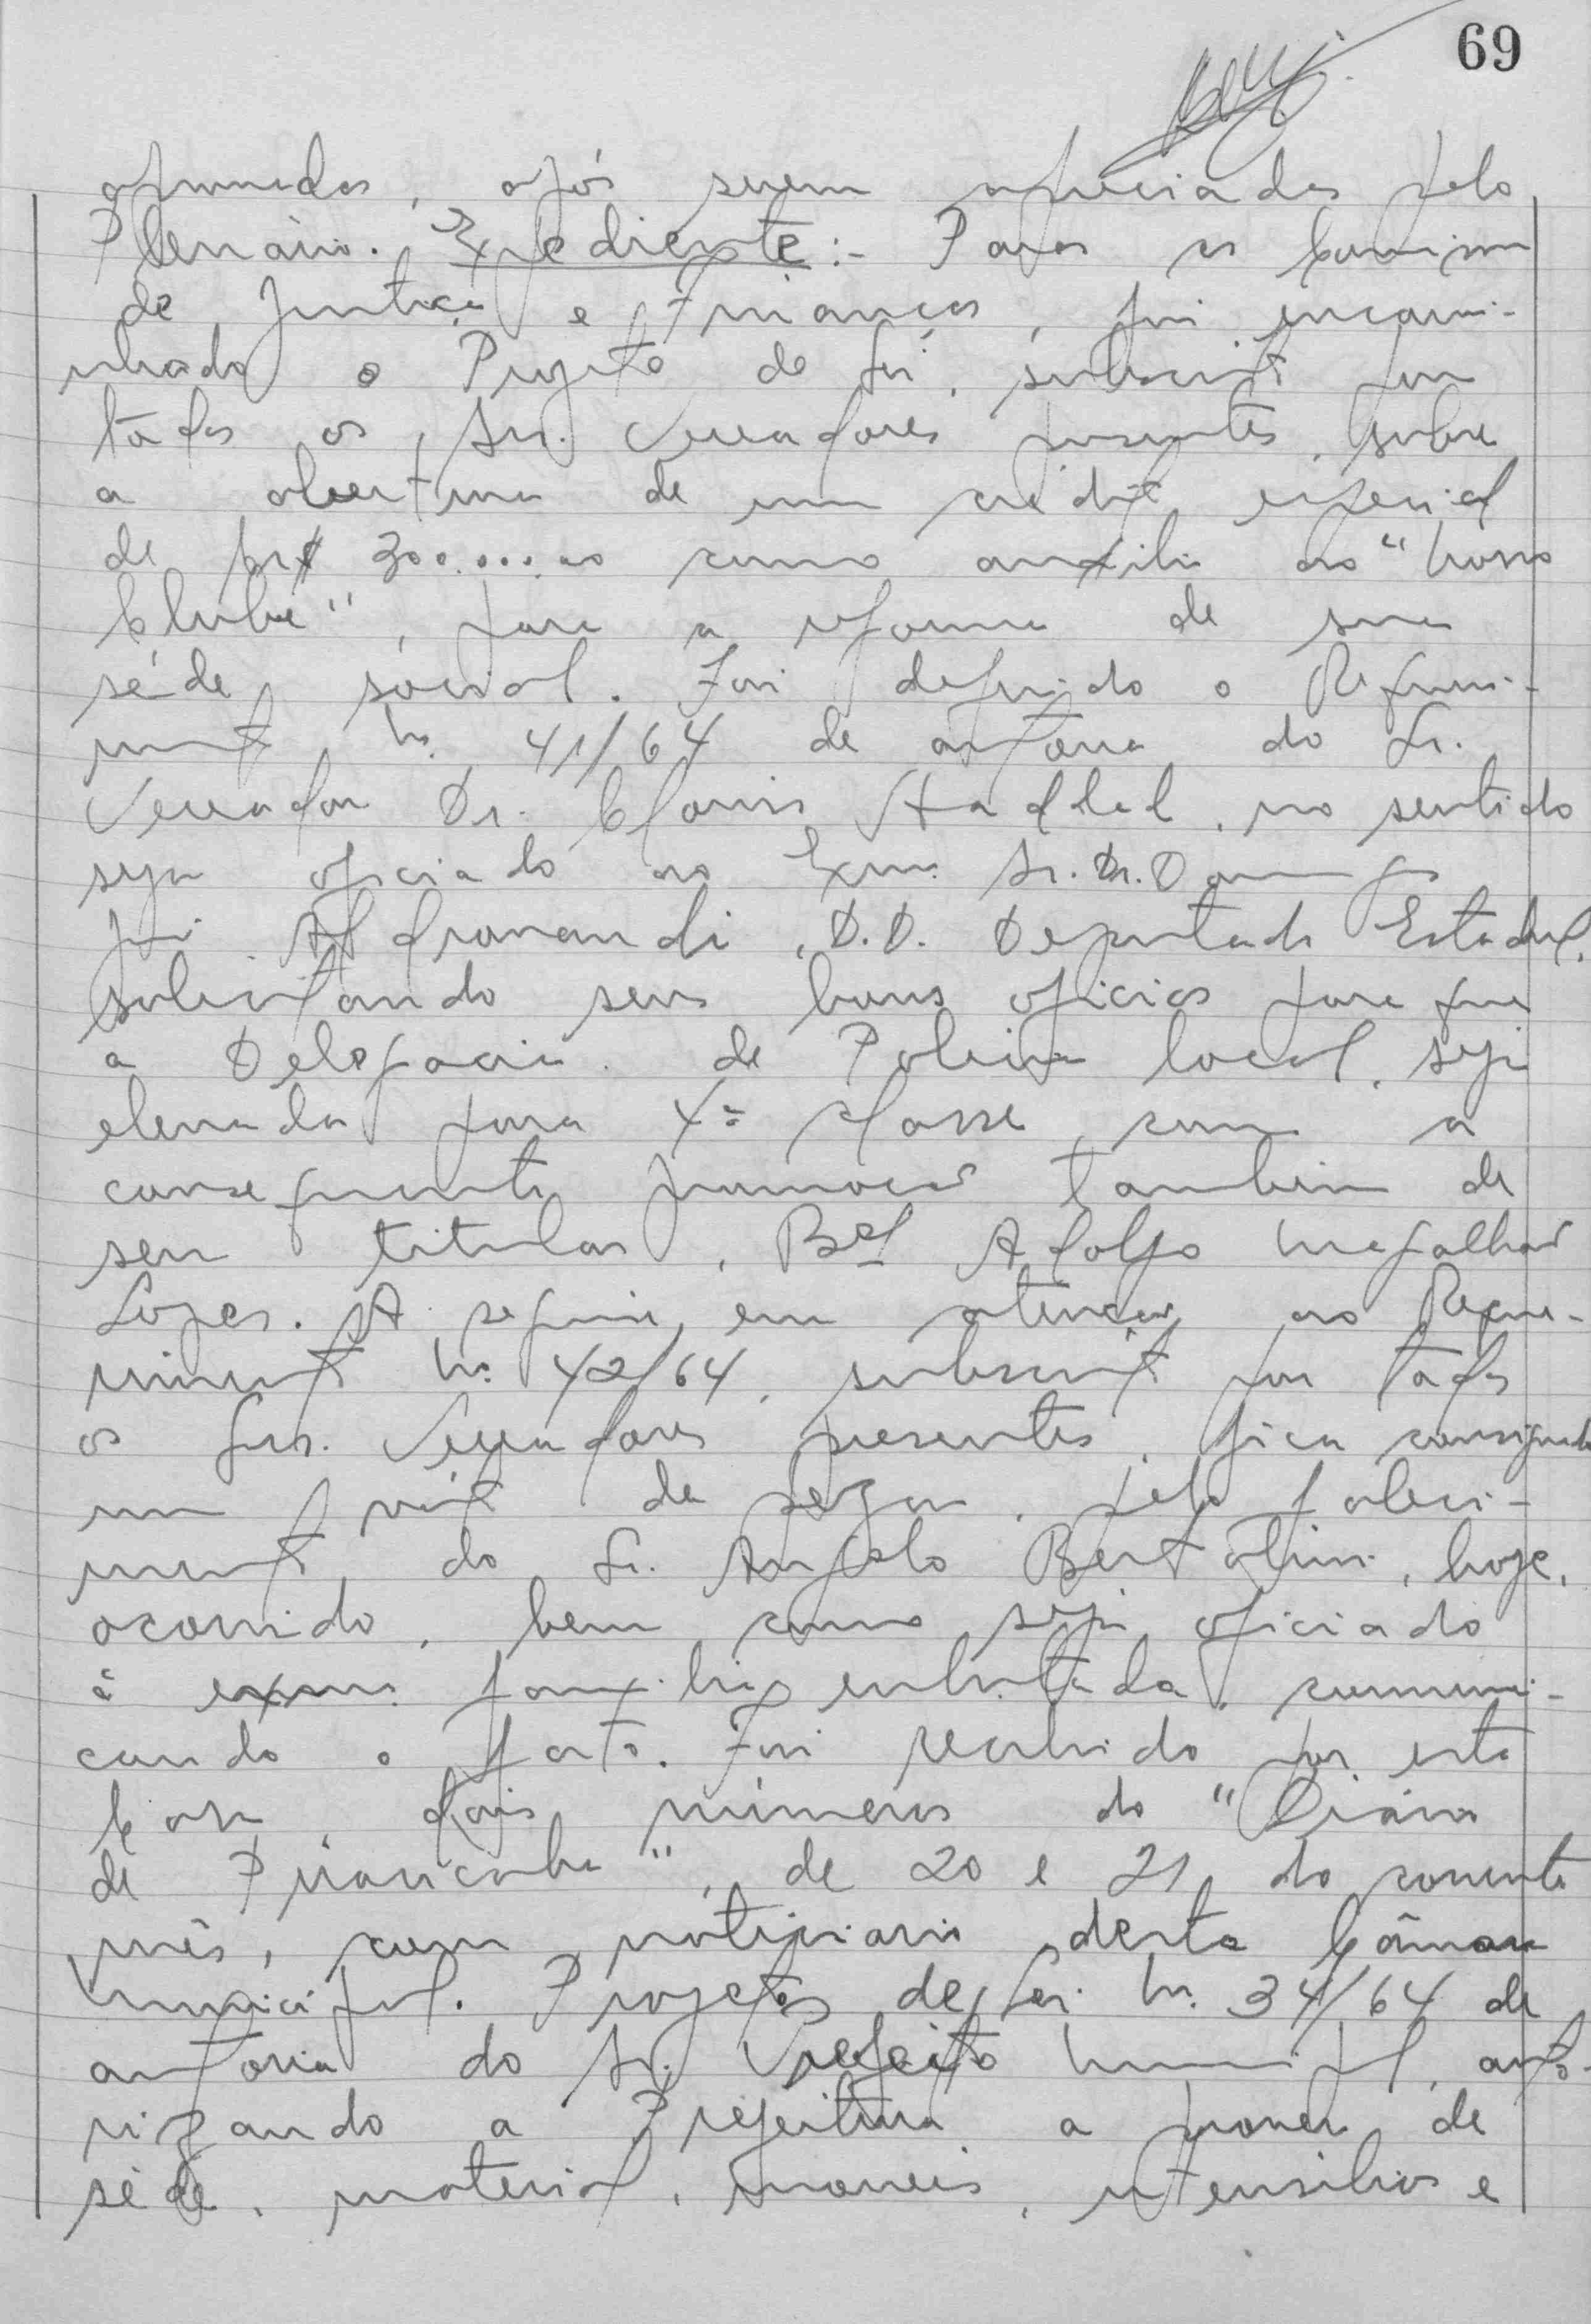 69
aprovadas, após serem apreciadas pelo
Plenário. Expediente:- Para as Comissões
de Justiça e Finanças, foi encami-
nhado o Projeto de Lei, subscrito por
todos os Srs. Vereadores presentes, sobre
a abertura de um crédito especial
de Cr$ 300.000,00 como auxílio ao "Nosso
Clube", para a reforma de sua
séde social. Foi deferido o Requeri-
mento nº 41/64 de autoria do Sr.
Vereador Dr. Clovis Haddad, no sentido
seja oficiado ao Exmo. Sr. Dr. Domingos
José Aldrovandi, D.D. Deputado Estadual,
solicitando seus bons oficios para que
a Delegacia de Policia local, seja
elevada para 4ª classe, com a
consequente promoção tambem de
seu titular, Bel Adolfo Magalhães
Lopes. A seguir, em atenção ao Reque-
rimento nº 42/64, subscrito por todos
os Srs. Vereadores presentes, fica consignado
um voto de pezar, pelo faleci-
mento do Sr. Angelo Bertolini, hoje,
ocorrido, bem como seja oficiado
à exma. familia enlutada, comuni-
cando o fato. Foi recebido por esta
Casa, dois números do "Diário
de Piracicaba", de 20 e 21 do corrente
mês, com noticiario desta Câmara
Municipal. Projeto de Lei nº 34/64 de
autoria do Sr. Prefeito Municipal, auto-
rizando a Prefeitura a prover de
séde, material, moveis, utensilios e